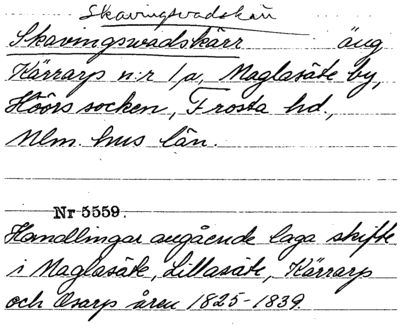 Skavingsvadskärr
Skavingswadskärr äng
Kärrarp n:r 1/a, Maglasäte by,
Höörs socken, Frosta hd.,
Mlm. hus län.
Nr 5559.
Handlingar angående laga skifte
i Maglasäte, Lillasäte, Kärrarp
och Osarp åren 1825-1839.